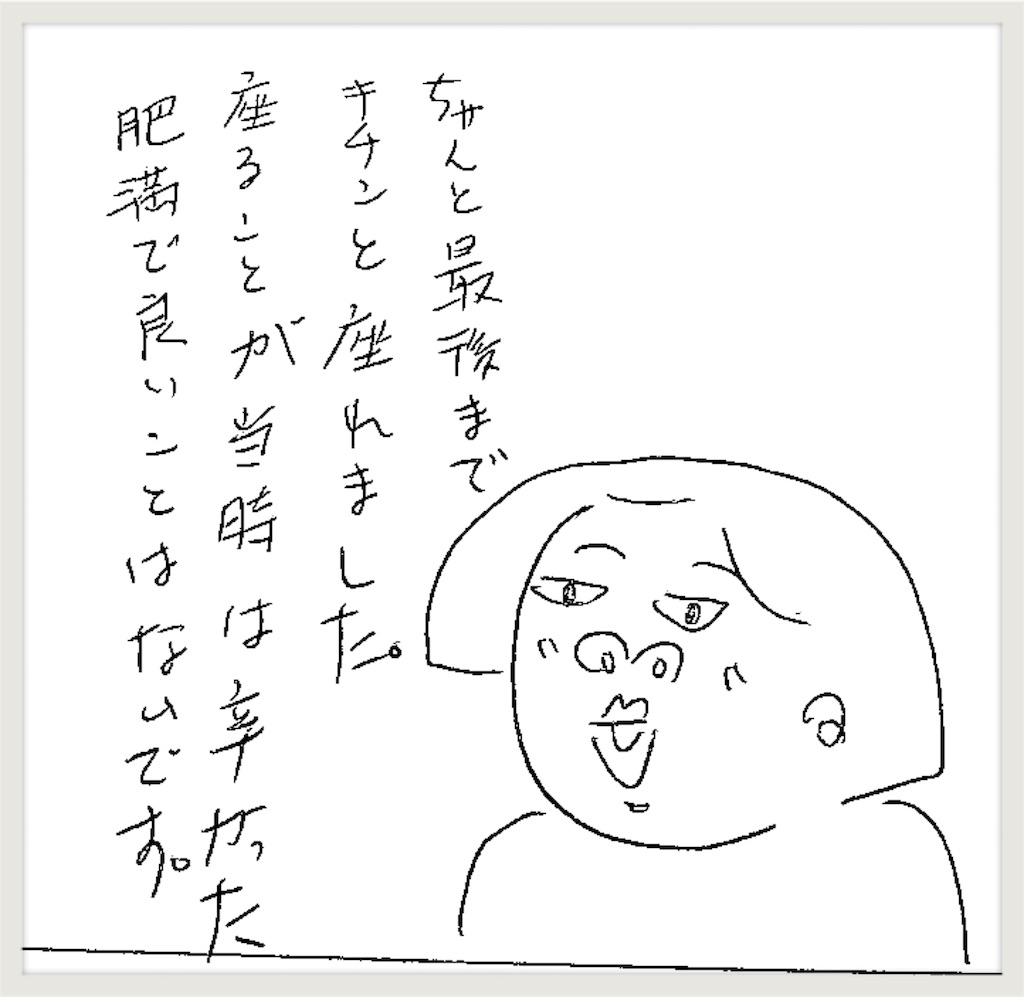 ちゃんと最後まで
キチンと座れました。
座ることが当時は辛かった
肥満で良いことはないです。